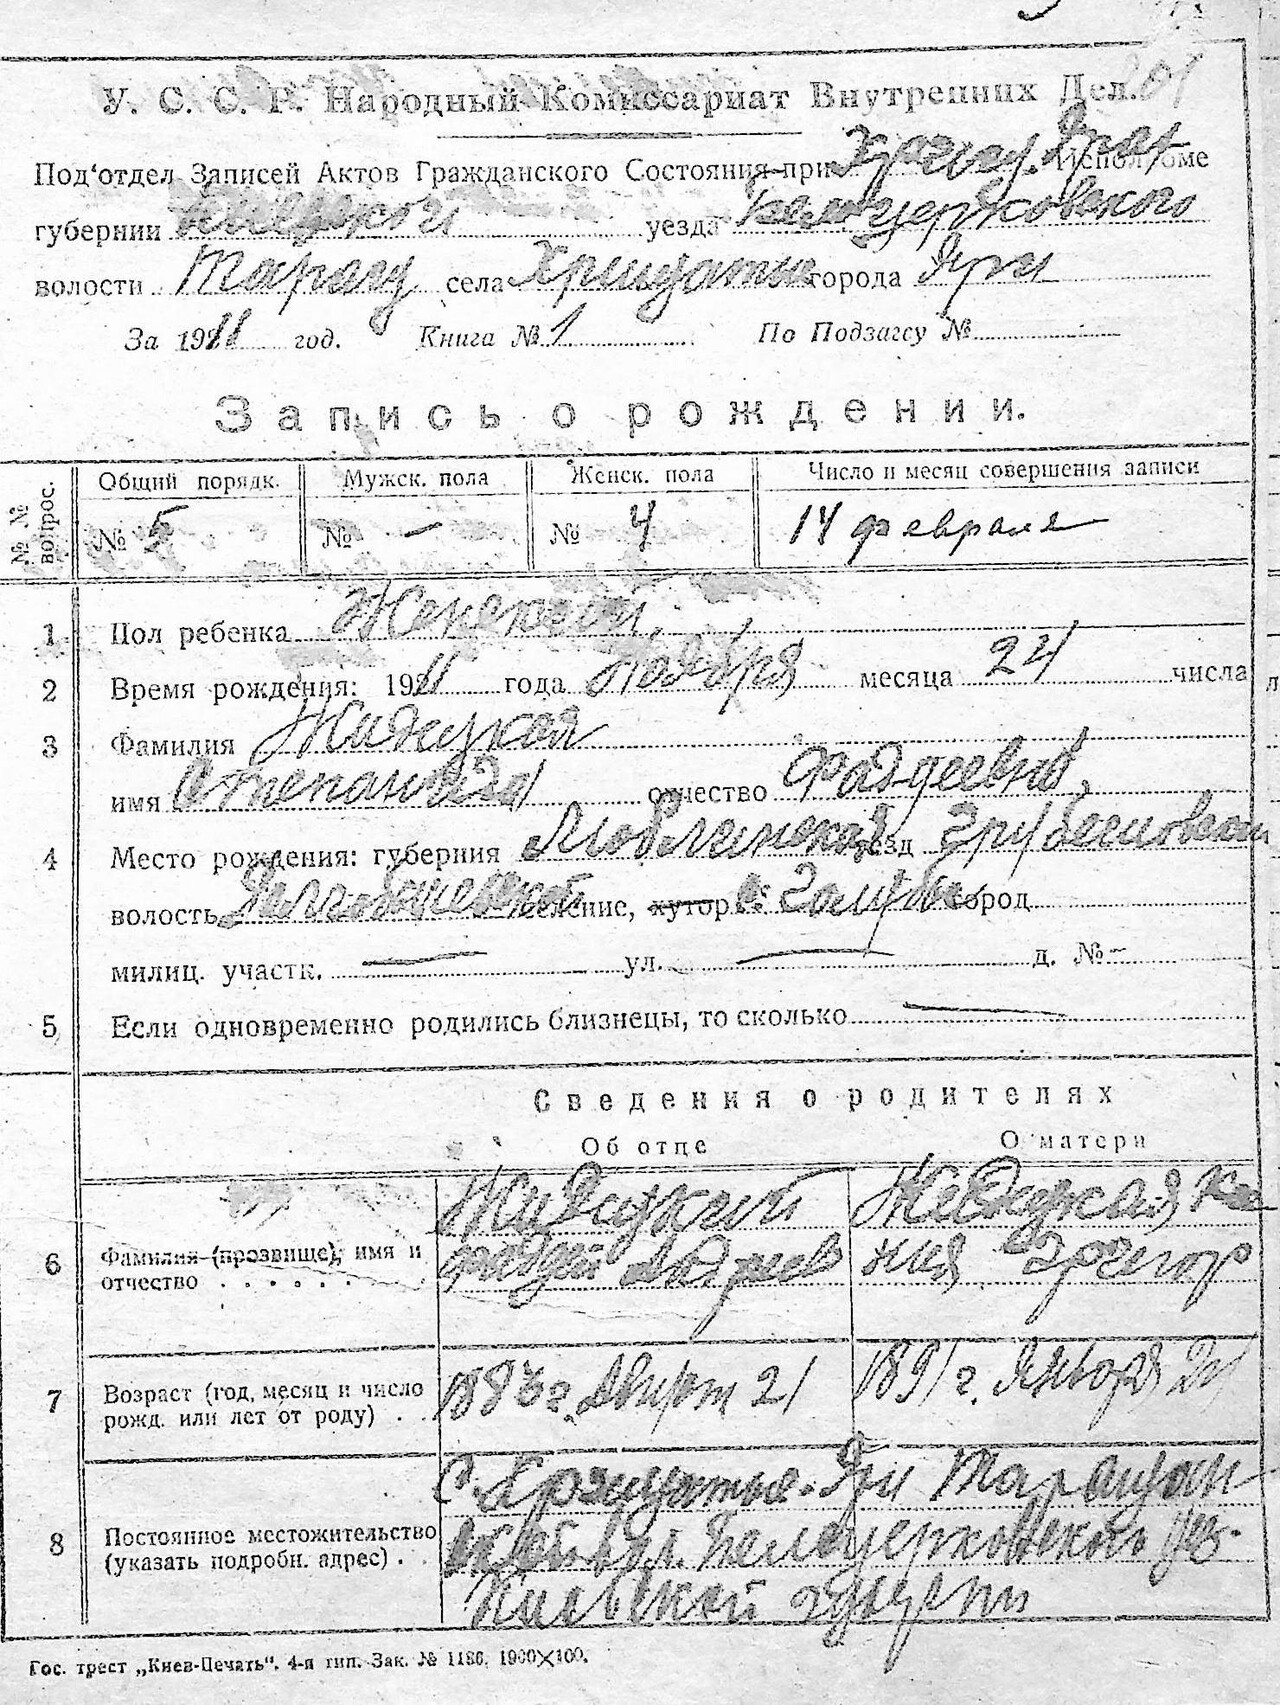 У. С. С. Р. Народный Комиссариат Внутренних Дел.
Под'отдел Записей Актов Гражданского Состояния при Исполкоме
губернии Киевской уезда Белоцерковского
волости Таращ села Хрещатые города Яры
За 19 год. Книга № 1 По Подзагсу №
Запись о рождении.
№ № вопрос.
Общий порядк. Мужск. пола Женск. пола Число и месяц совершения записи
№ 5 № — № 4 14 февраля
1 Пол ребенка Женский
2 Время рождения: 1911 года Ноября месяца 24 числа
3 Фамилия Жидецкая
имя Степанида отчество Фаддеевна,
4 Место рождения: губерния Люблинская уезд Грубешовский
волость селение, хутор с. Голубье город
милиц. участк. — ул. — д. № -
5 Если одновременно родились близнецы, то сколько —
Сведения о родителях
Об отце О матери
6 Фамилия (прозвище), имя и отчество . . . . . .
Жидецкий Фадей Андреев
Жидецкая Ксения Григор
7 Возраст (год, месяц и число рожд. или лет от роду) . .
1883 г. Август 21
1891 г. Января 21
8 Постоянное местожительство (указать подробн. адрес) . .
С. Хрещатые-Яры Таращан
ской вол. Белоцерковского уез.
Киевской губерни
Гос. трест „Киев-Печать". 4-я тип. Зак. № 1186. 1900×100.